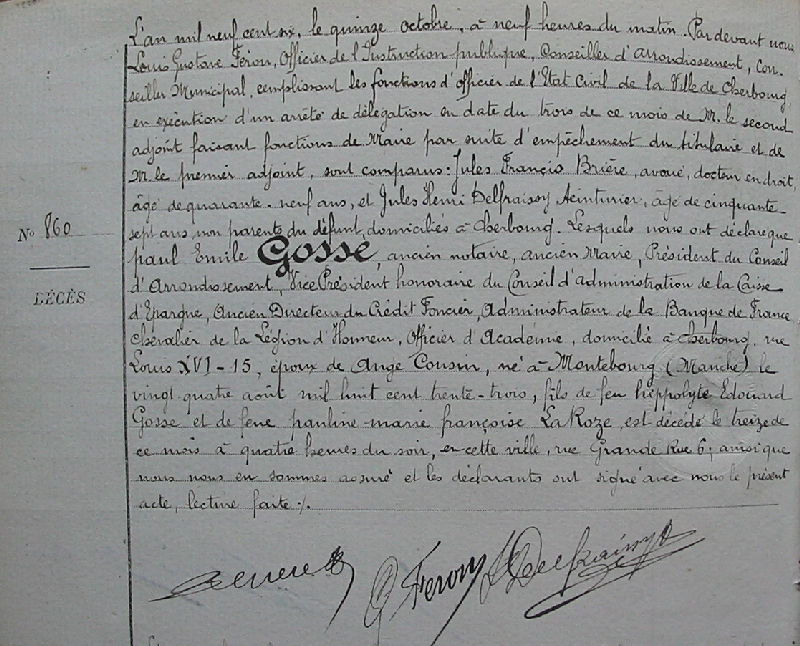 L'an mil neuf cent six, le quinze octobre, à neuf heures du matin. Par devant nous
Louis Gustave Féron, Officier de l'Instruction publique, Conseiller d'arrondissement, Con-
seiller Municipal, remplissant les fonctions d'officier de l'Etat Civil de la Ville de Cherbourg
en exécution d'un arrêté de délégation en date du trois de ce mois de M. le second
adjoint faisant fonctions de Maire par suite d'empêchement du titulaire et de
M. le premier adjoint, sont comparus: Jules François Brière, avoué, docteur en droit,
âgé de quarante-neuf ans, et Jules Henri Delfraissy teinturier, âgé de cinquante-
sept ans non parents du défunt, domiciliés à Cherbourg. Lesquels nous ont déclaré que
N° 860
paul Emile Gosse, ancien notaire, ancien Maire, Président du Conseil
d'Arrondissement, Vice Président honoraire du Conseil d'administration de la Caisse
DÉCÈS
d'Epargne, Ancien Directeur du Crédit Foncier, Administrateur de la Banque de France
Chevalier de la Légion d'Honneur, Officier d'Académie, domicilié à Cherbourg, rue
Louis XVI-15, époux de Ange Cousin, né à Montebourg (Manche) le
vingt-quatre août mil huit cent trente-trois, fils de feu hippolyte Edouard
Gosse et de feue pauline marie françoise LaRoze, est décédé le treize de
ce mois à quatre heures du soir, en cette ville, rue Grande Rue 6; ainsi que
nous nous en sommes assuré et les déclarants ont signé avec nous le présent
acte, lecture faite ./.
G Féron Delfraissy